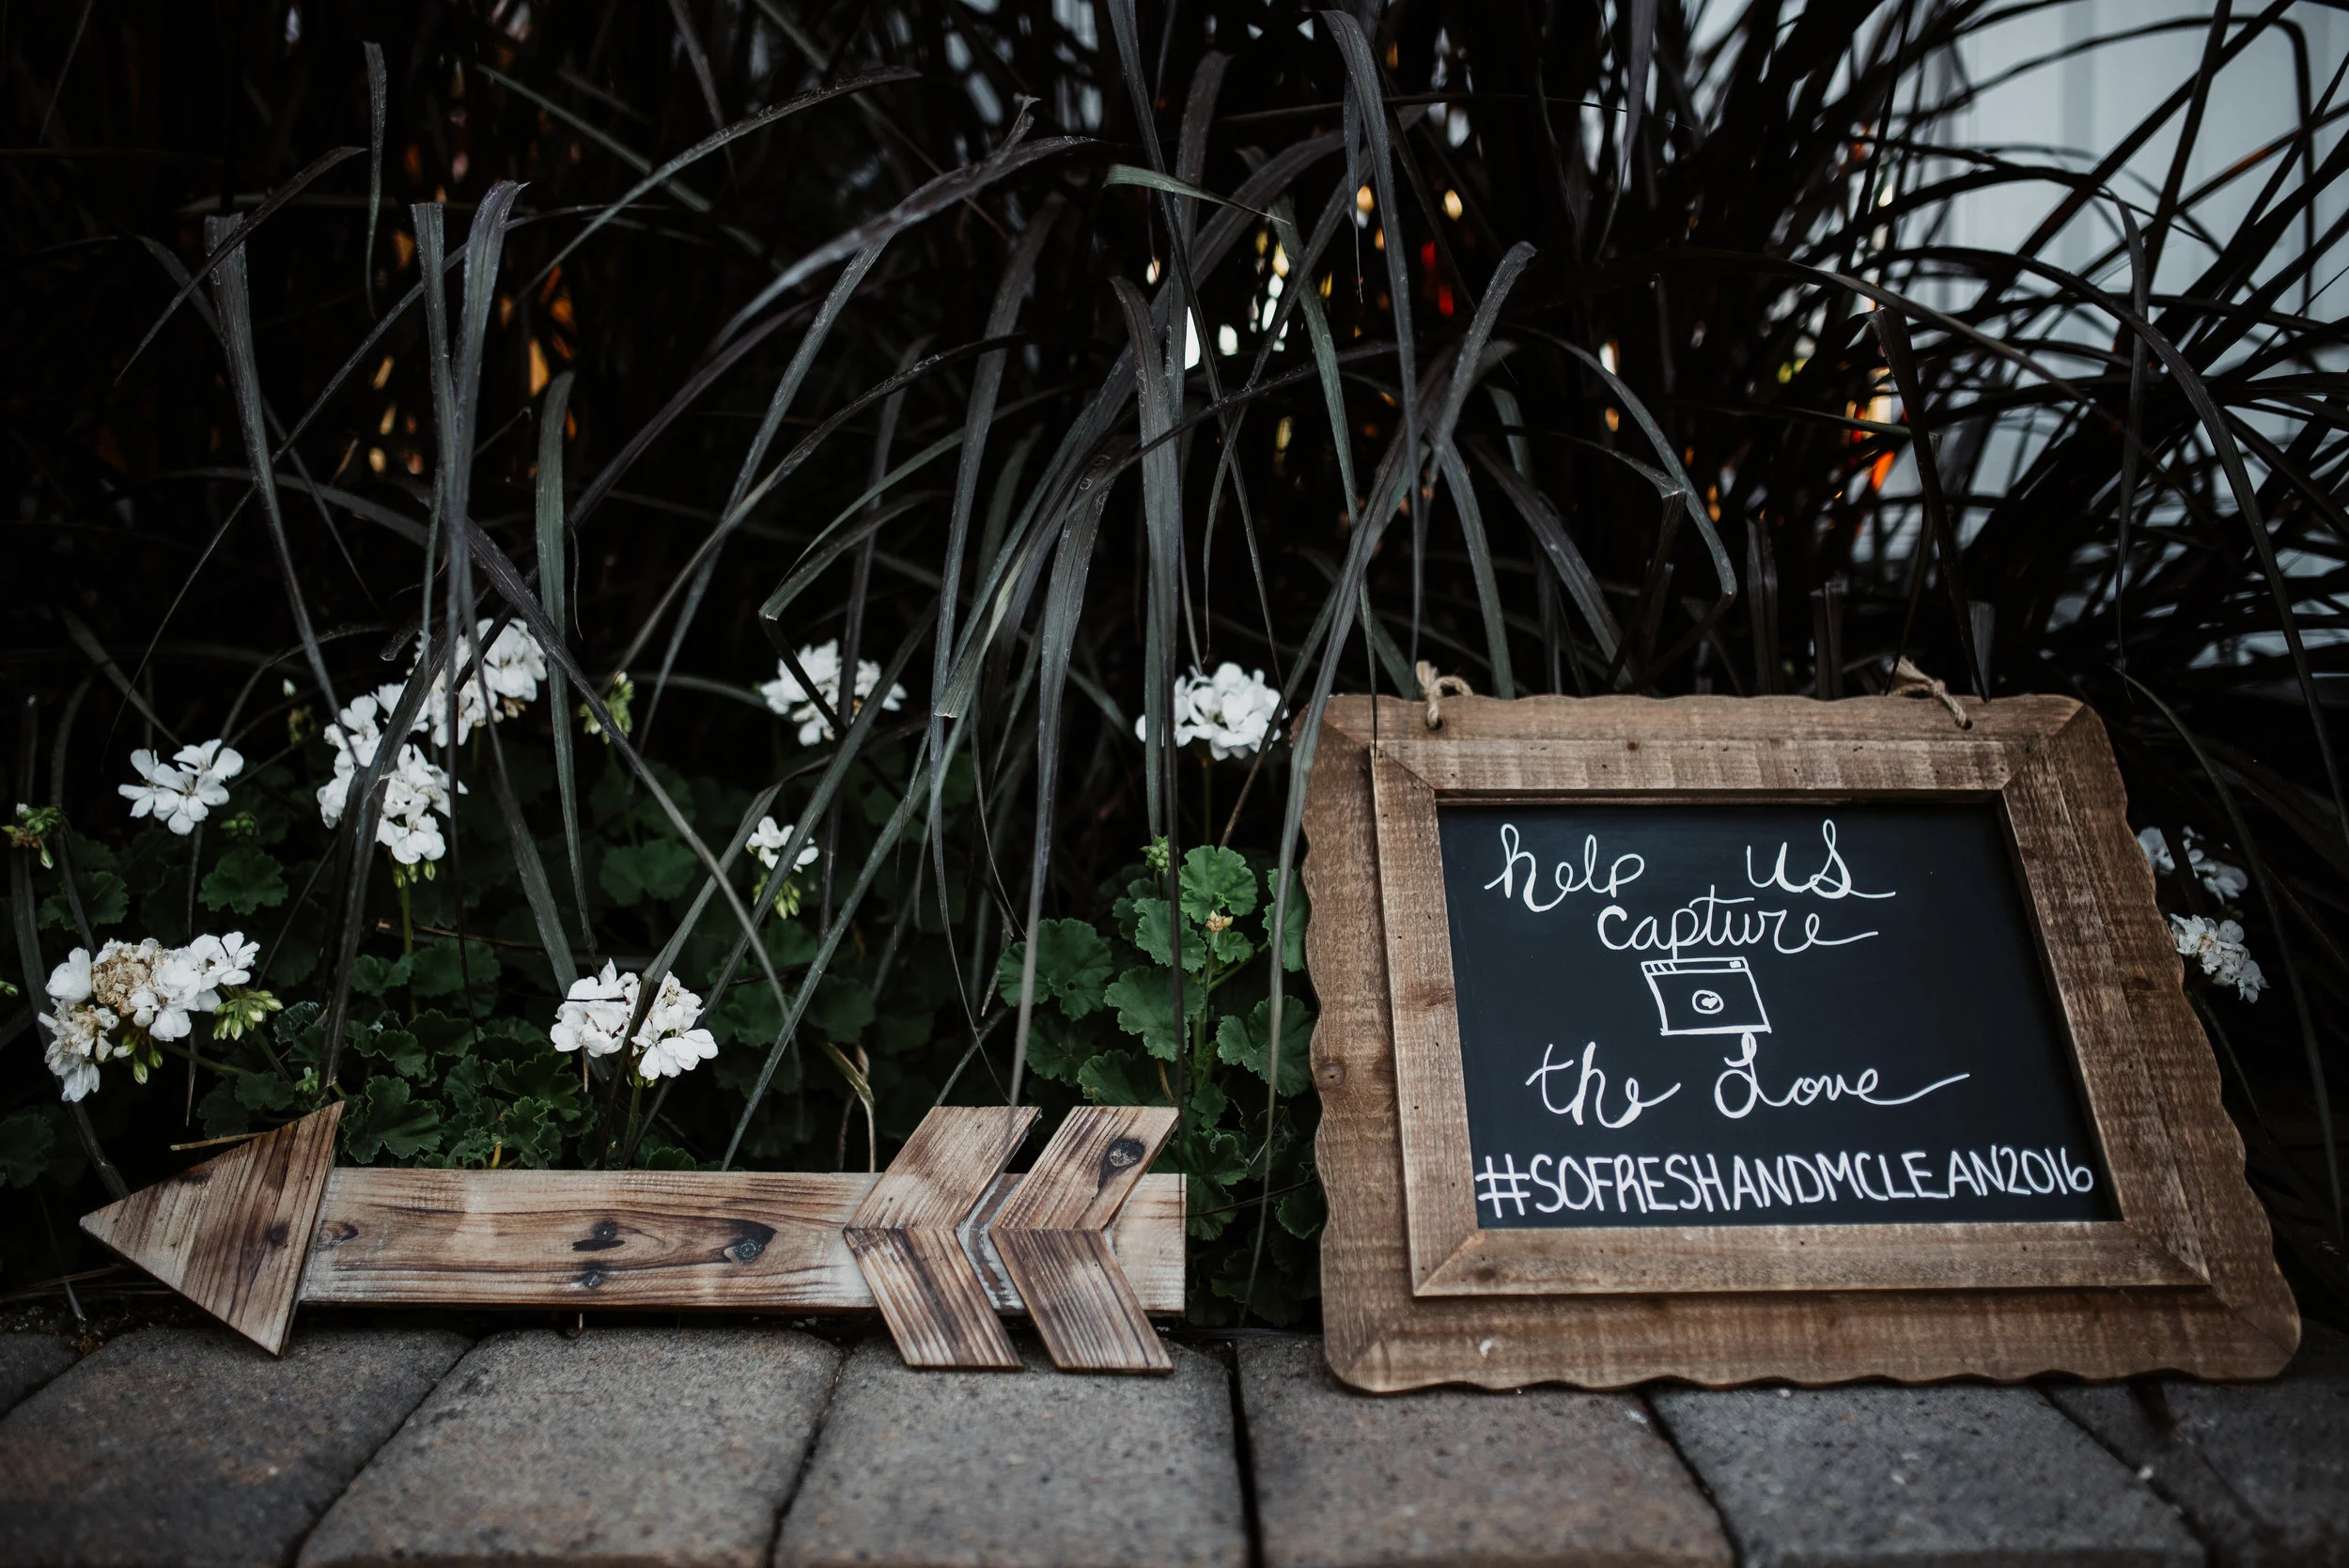 help us
capture
the Love
#SOFRESHANDMCLEAN2016